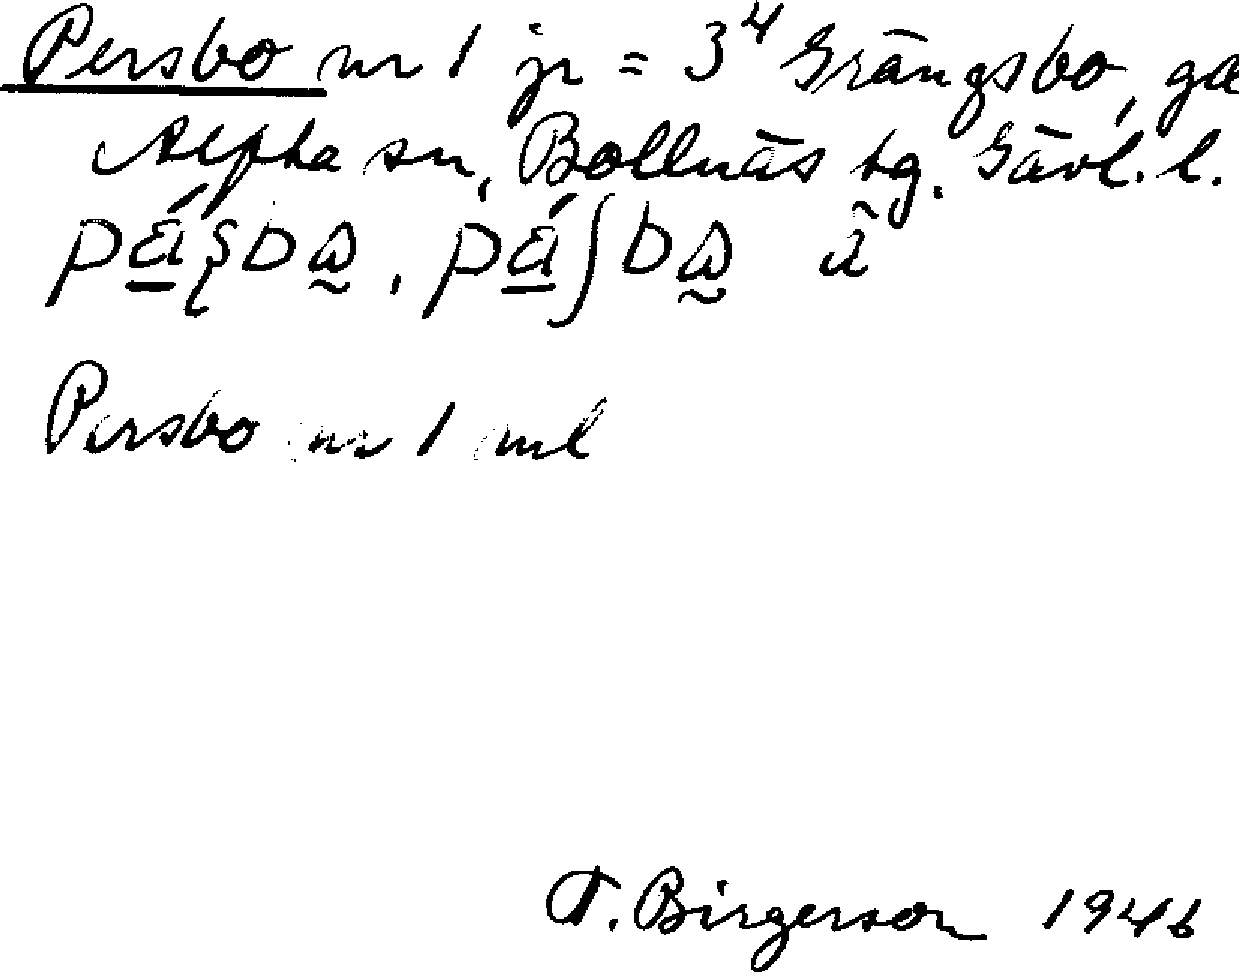 Persbo nr 1 jr = 3⁴ Grängsbo, gd
Alfta sn, Bollnäs tg. Gävl. l.
Persbo nr 1 ml
T. Birgerson 1946